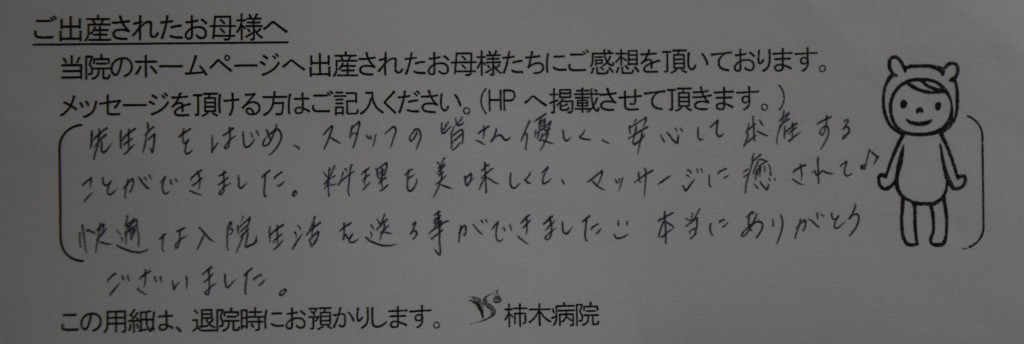 ご出産されたお母様へ
当院のホームページへ出産されたお母様たちにご感想を頂いております。
メッセージを頂ける方はご記入ください。(HPへ掲載させて頂きます。)
先生方をはじめ、スタッフの皆さん優しく、安心して出産する
ことができました。料理も美味しくて、マッサージに癒されて♪
快適な入院生活を送る事ができました 本当にありがとう
ございました。
この用紙は、退院時にお預かりします。 柿木病院